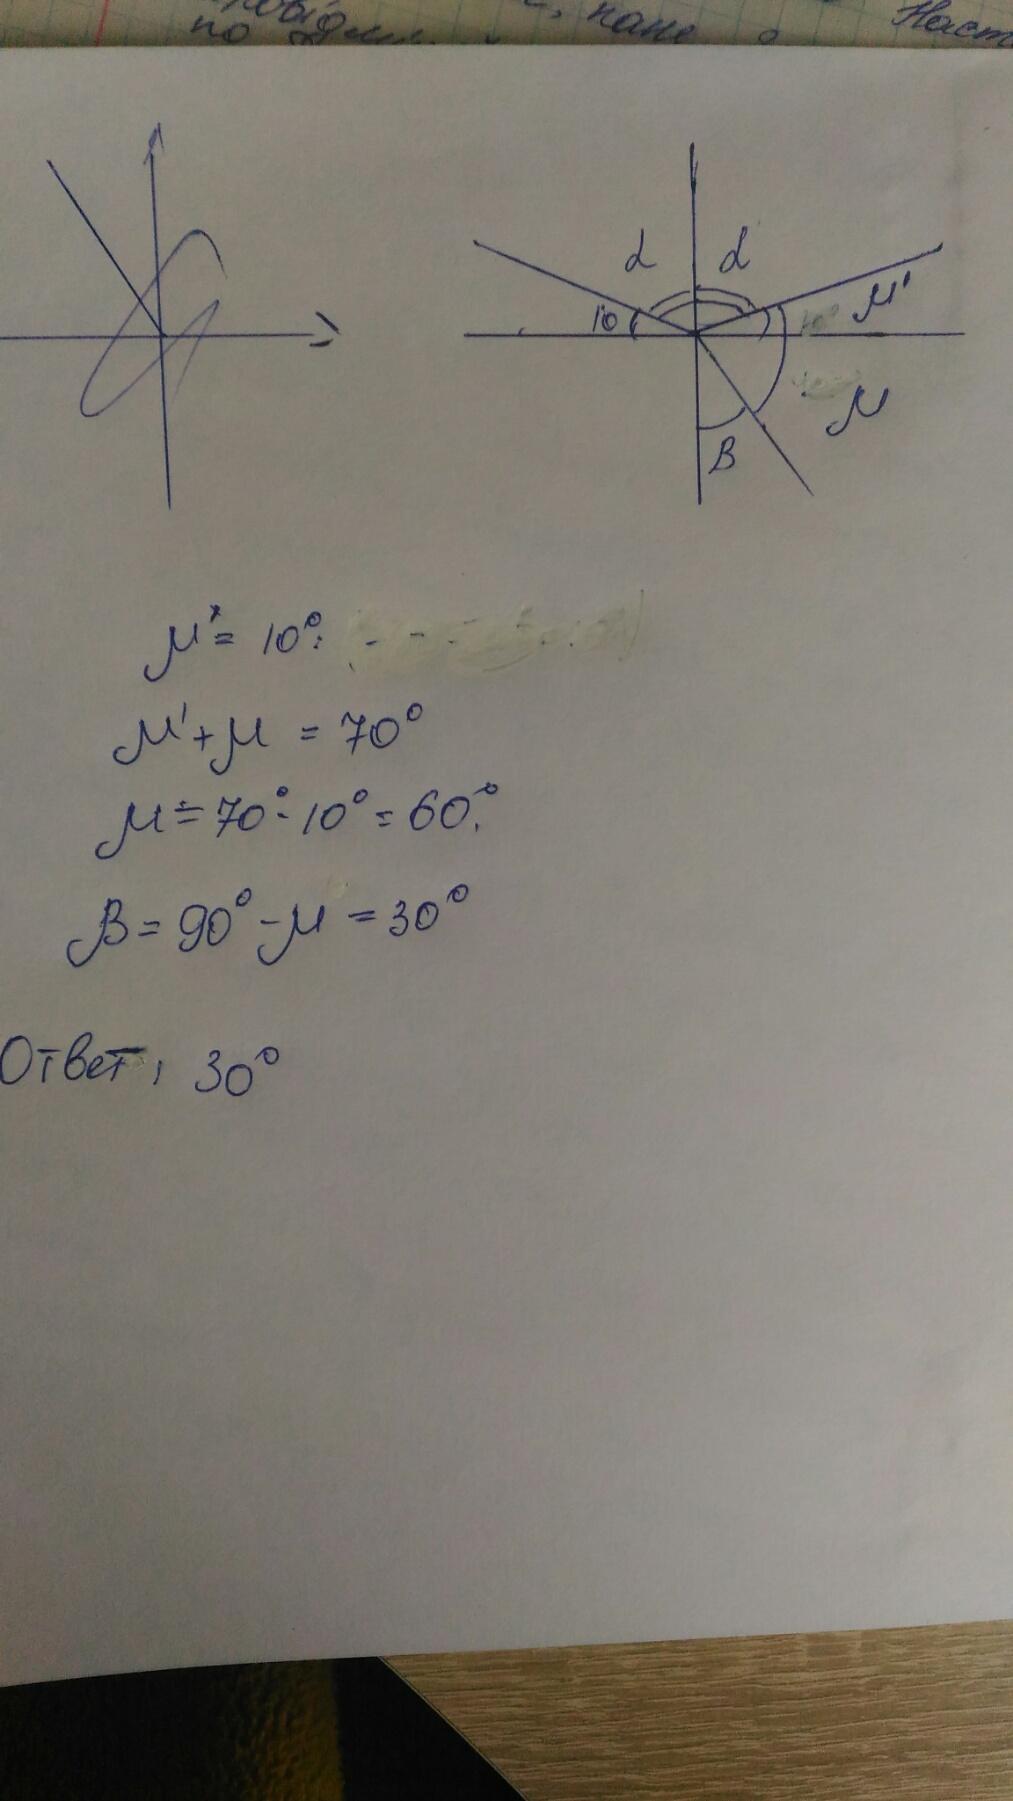 по
пане
α α
10 μ'
10°
μ
β
μ' = 10°.
μ' + μ = 70°
μ = 70° - 10° = 60°.
β = 90° - μ = 30°
Ответ: 30°